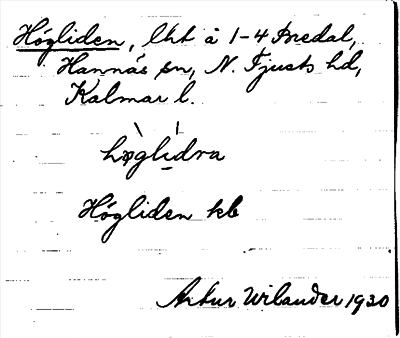 Högliden, lht å 1-4 Bredal,
Hannäs sn, N. Tjusts hd,
Kalmar l.
hø̀glídra
Högliden kb
Artur Wilander 1930